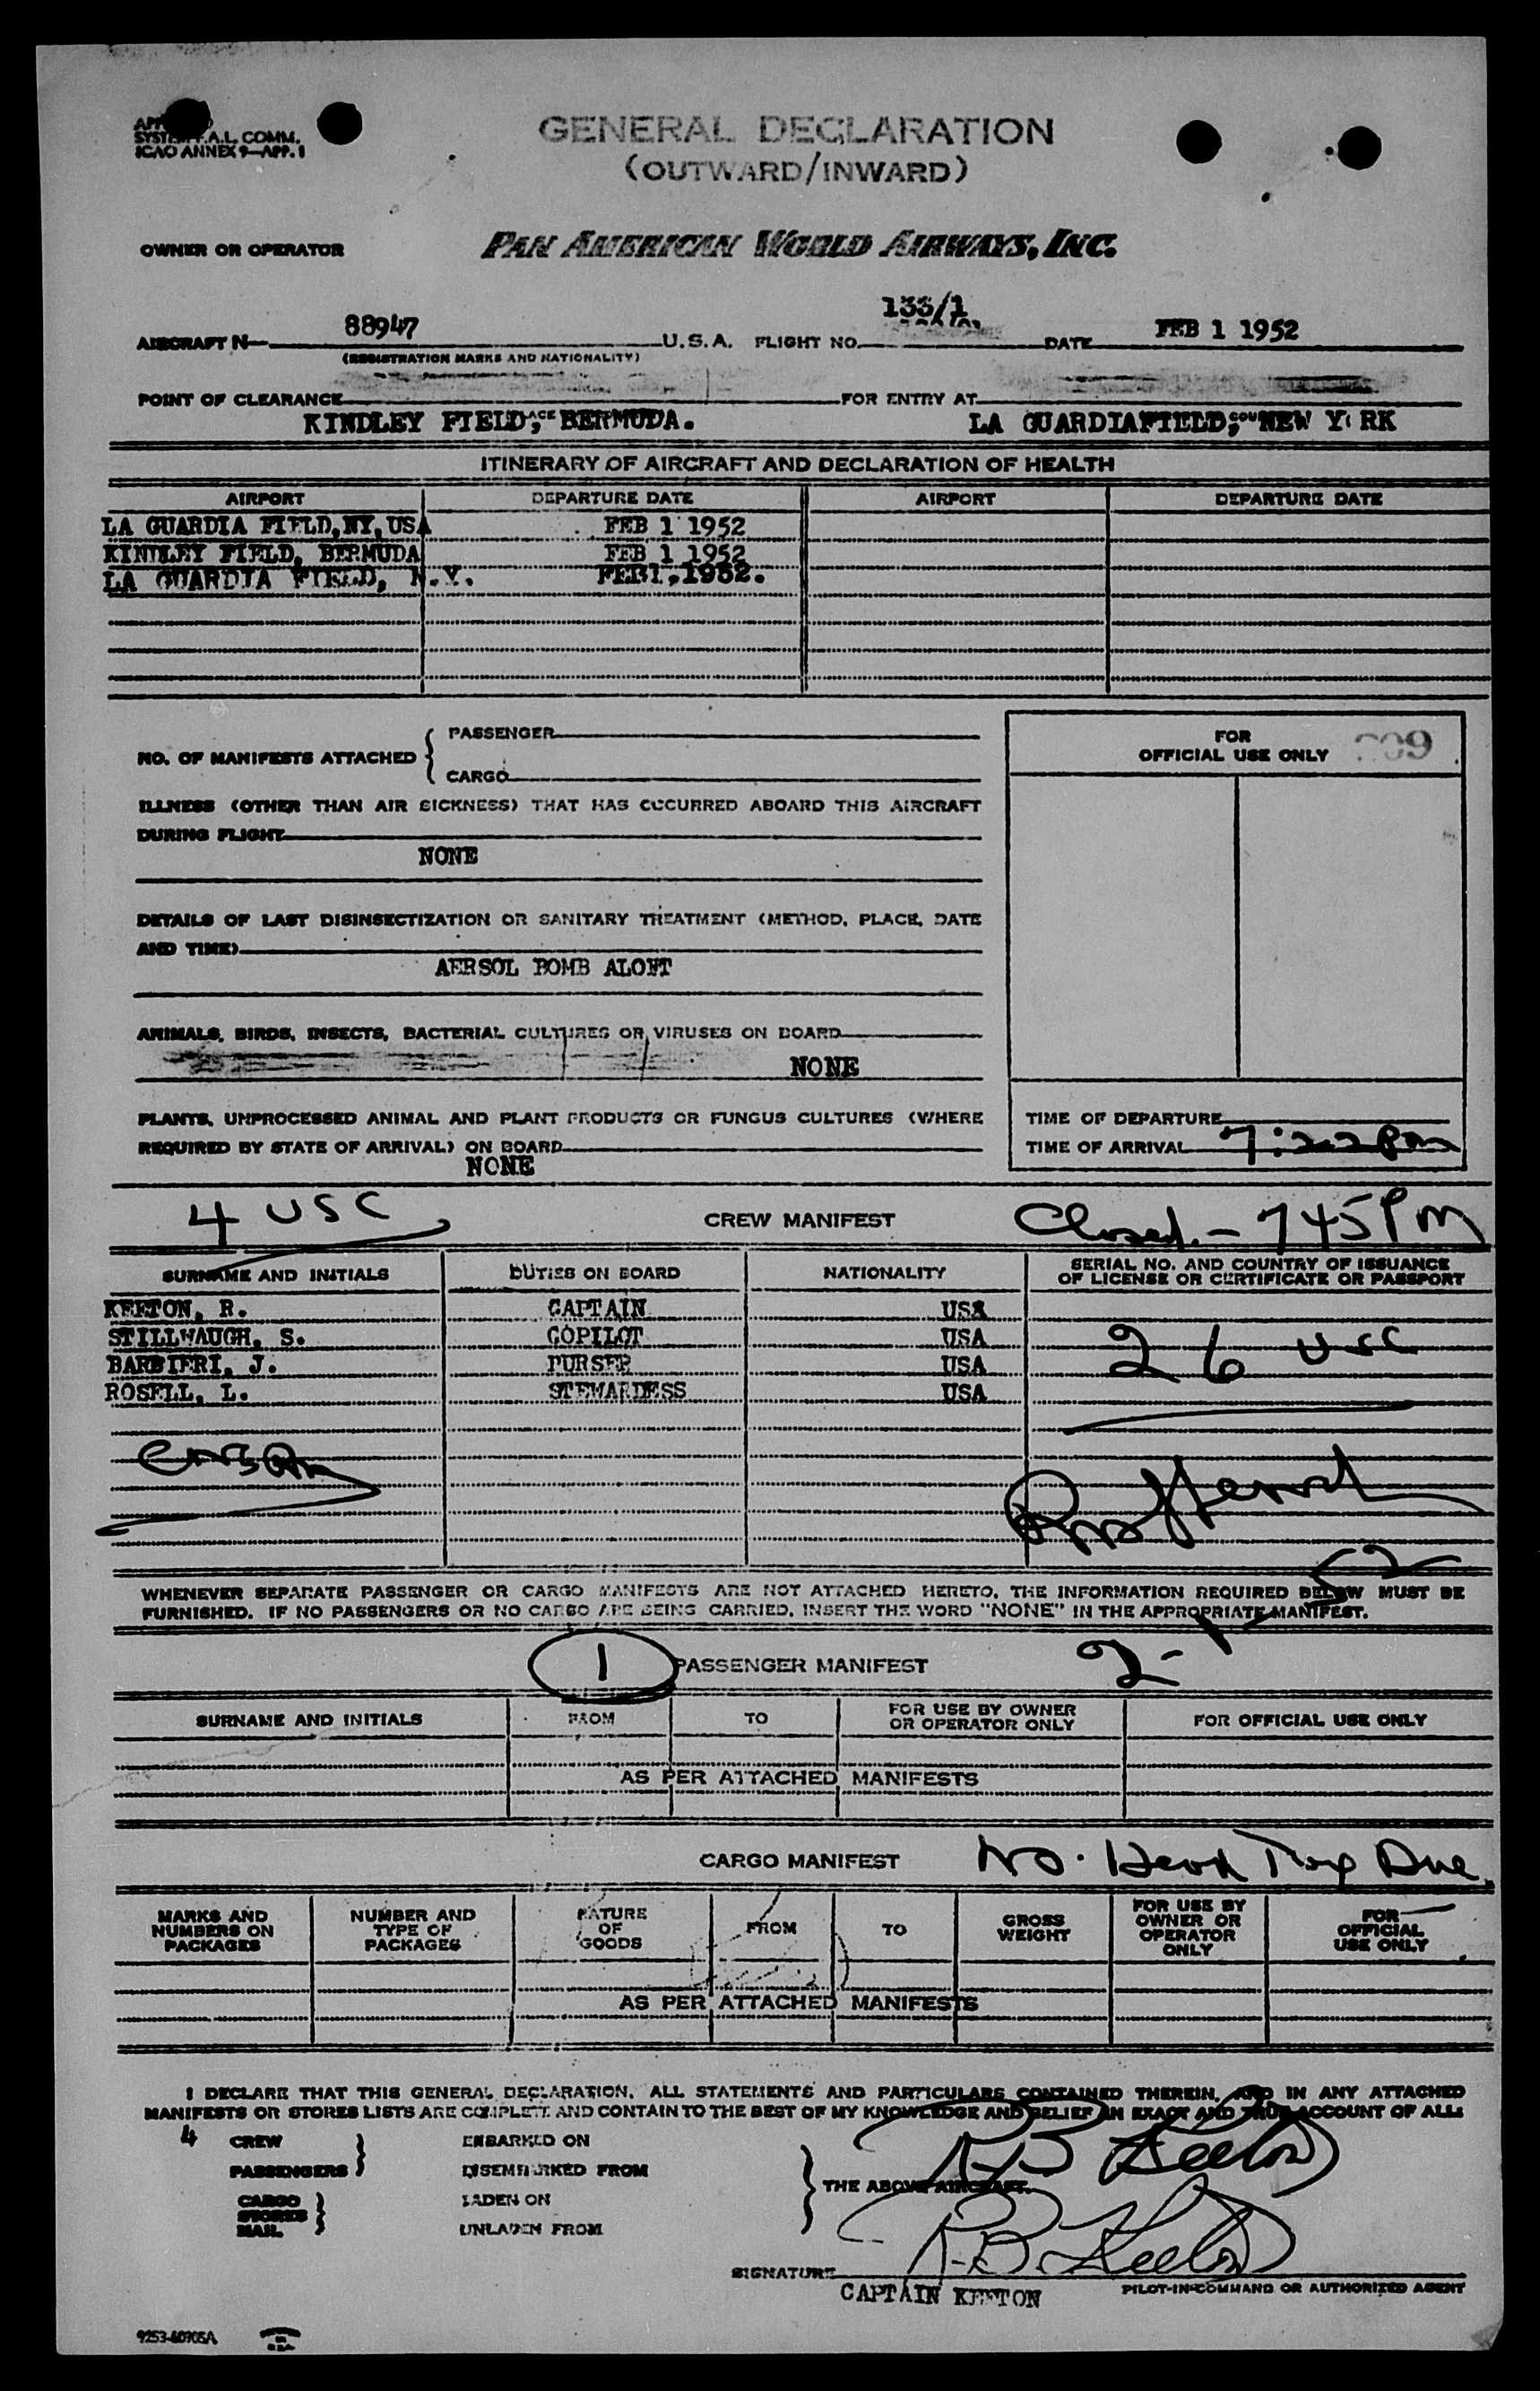 SYSTEM F.A.L. COMM.
ICAO ANNEX 9—APP. 1
GENERAL DECLARATION
(OUTWARD/INWARD)
OWNER OR OPERATOR PAN AMERICAN WORLD AIRWAYS, INC.
133/1
AIRCRAFT N— 88947 U.S.A. FLIGHT NO. DATE FEB 1 1952
(REGISTRATION MARKS AND NATIONALITY)
POINT OF CLEARANCE FOR ENTRY AT
KINDLEY FIELD, BERMUDA. LA GUARDIAFIELD, NEW Y RK
ITINERARY OF AIRCRAFT AND DECLARATION OF HEALTH
AIRPORT DEPARTURE DATE AIRPORT DEPARTURE DATE
LA GUARDIA FIELD,NY,USA FEB 1 1952
KINDLEY FIELD, BERMUDA FEB 1 1952
LA GUARDIA FIELD, N.Y. FEB1,1952.
NO. OF MANIFESTS ATTACHED { PASSENGER
CARGO
FOR
OFFICIAL USE ONLY
ILLNESS (OTHER THAN AIR SICKNESS) THAT HAS OCCURRED ABOARD THIS AIRCRAFT
DURING FLIGHT
NONE
DETAILS OF LAST DISINSECTIZATION OR SANITARY TREATMENT (METHOD, PLACE, DATE
AND TIME)
AERSOL BOMB ALOFT
ANIMALS, BIRDS, INSECTS, BACTERIAL CULTURES OR VIRUSES ON BOARD
NONE
PLANTS, UNPROCESSED ANIMAL AND PLANT PRODUCTS OR FUNGUS CULTURES (WHERE
REQUIRED BY STATE OF ARRIVAL) ON BOARD
NONE
TIME OF DEPARTURE
TIME OF ARRIVAL 7:22 Pm
4 USC CREW MANIFEST Closed - 745 PM
SURNAME AND INITIALS DUTIES ON BOARD NATIONALITY SERIAL NO. AND COUNTRY OF ISSUANCE
OF LICENSE OR CERTIFICATE OR PASSPORT
KEETON, R. CAPTAIN USA
STILLWAUGH, S. COPILOT USA
BARBIERI, J. PURSER USA
ROSELL, L. STEWARDESS USA
26 USC
WHENEVER SEPARATE PASSENGER OR CARGO MANIFESTS ARE NOT ATTACHED HERETO, THE INFORMATION REQUIRED BELOW MUST BE
FURNISHED. IF NO PASSENGERS OR NO CARGO ARE BEING CARRIED, INSERT THE WORD "NONE" IN THE APPROPRIATE MANIFEST.
1 PASSENGER MANIFEST 2-1-52
SURNAME AND INITIALS FROM TO FOR USE BY OWNER
OR OPERATOR ONLY FOR OFFICIAL USE ONLY
AS PER ATTACHED MANIFESTS
CARGO MANIFEST No. Head Tax Due
MARKS AND
NUMBERS ON
PACKAGES NUMBER AND
TYPE OF
PACKAGES NATURE
OF
GOODS FROM TO GROSS
WEIGHT FOR USE BY
OWNER OR
OPERATOR
ONLY FOR
OFFICIAL
USE ONLY
AS PER ATTACHED MANIFESTS
I DECLARE THAT THIS GENERAL DECLARATION, ALL STATEMENTS AND PARTICULARS CONTAINED THEREIN, AND IN ANY ATTACHED
MANIFESTS OR STORES LISTS ARE COMPLETE AND CONTAIN TO THE BEST OF MY KNOWLEDGE AND BELIEF AN EXACT AND TRUE ACCOUNT OF ALL:
4 CREW EMBARKED ON
PASSENGERS DISEMBARKED FROM
THE ABOVE AIRCRAFT.
R.B. Keeton
CARGO LADEN ON
STORES
MAIL UNLADEN FROM
R.B. Keeton
SIGNATURE
CAPTAIN KEETON PILOT-IN-COMMAND OR AUTHORIZED AGENT